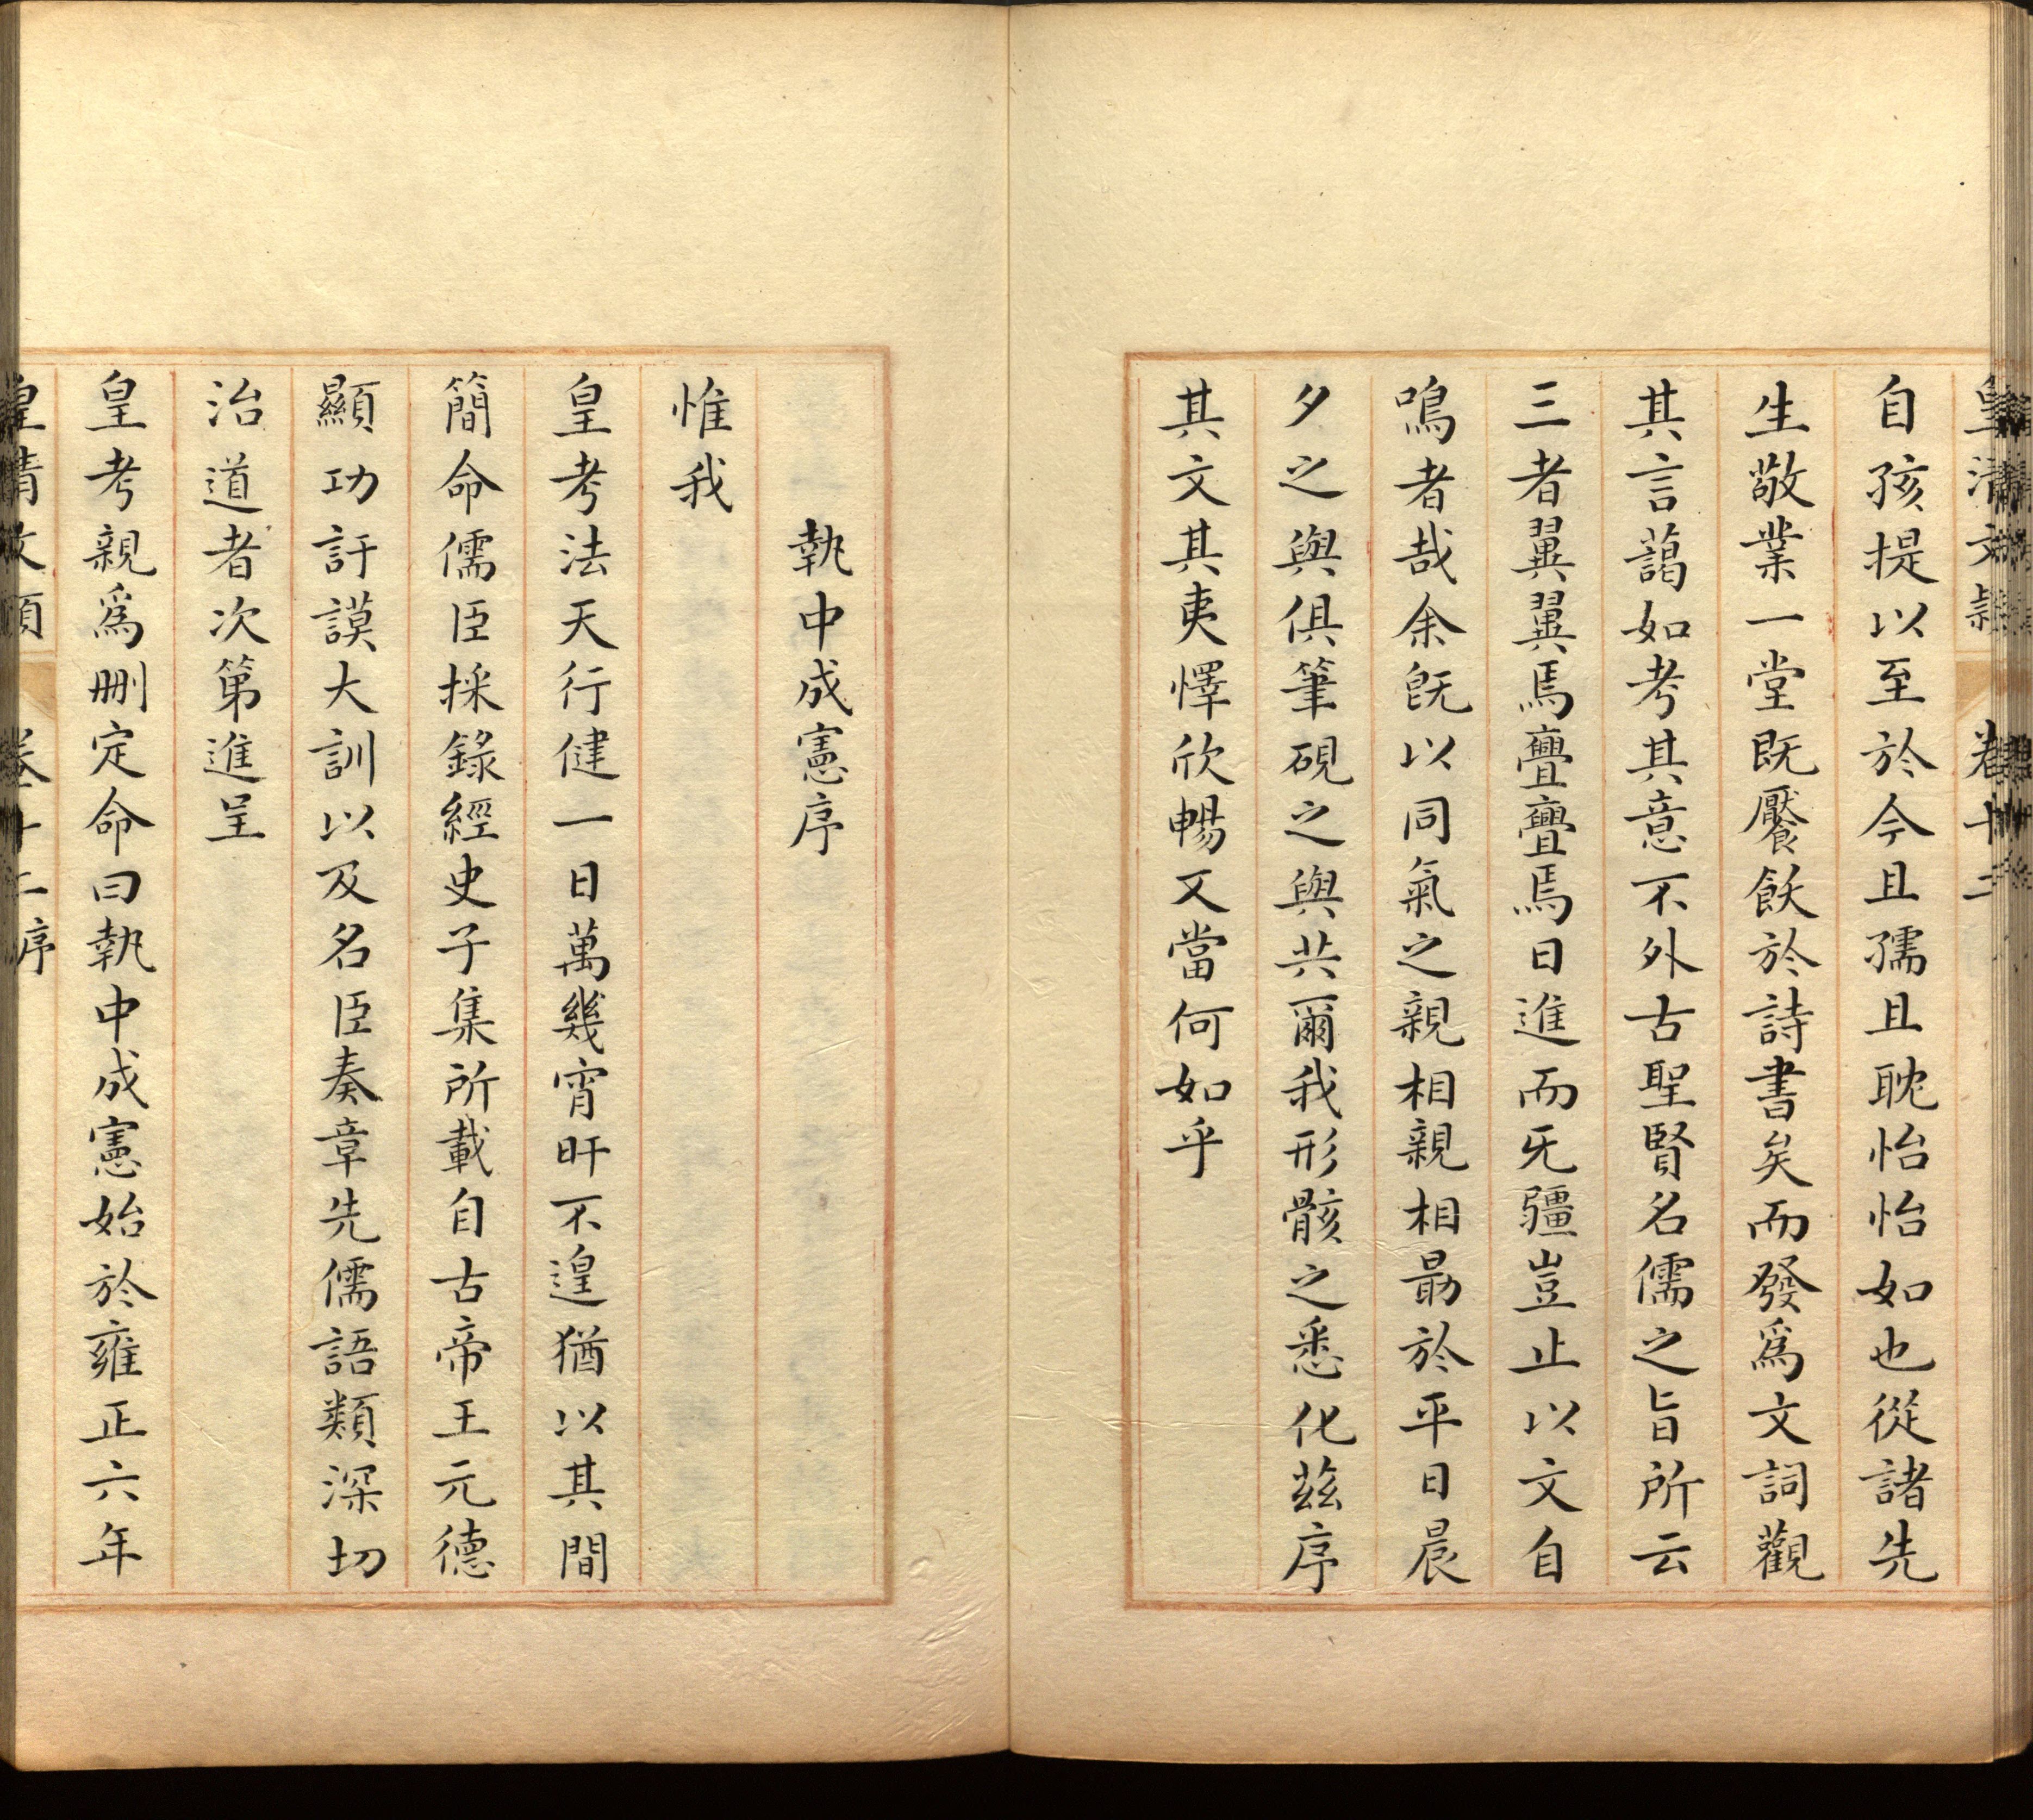 皇清文頴 卷十二
自孩提以至於今且孺且耽怡怡如也從諸先
生敬業一堂既饜飫於詩書矣而發爲文詞觀
其言藹如考其意不外古聖賢名儒之旨所云
三者翼翼焉亹亹焉日進而无疆豈止以文自
鳴者哉余旣以同氣之親相親相勗於平日晨
夕之與俱筆硯之與共爾我形骸之悉化茲序
其文其夷懌欣暢又當何如乎
執中成憲序
惟我
皇考法天行健一日萬幾宵旰不遑猶以其間
簡命儒臣採錄經史子集所載自古帝王元德
顯功訏謨大訓以及名臣奏章先儒語類深切
治道者次第進呈
皇考親爲删定命曰執中成憲始於雍正六年
皇清文頴 卷十二序